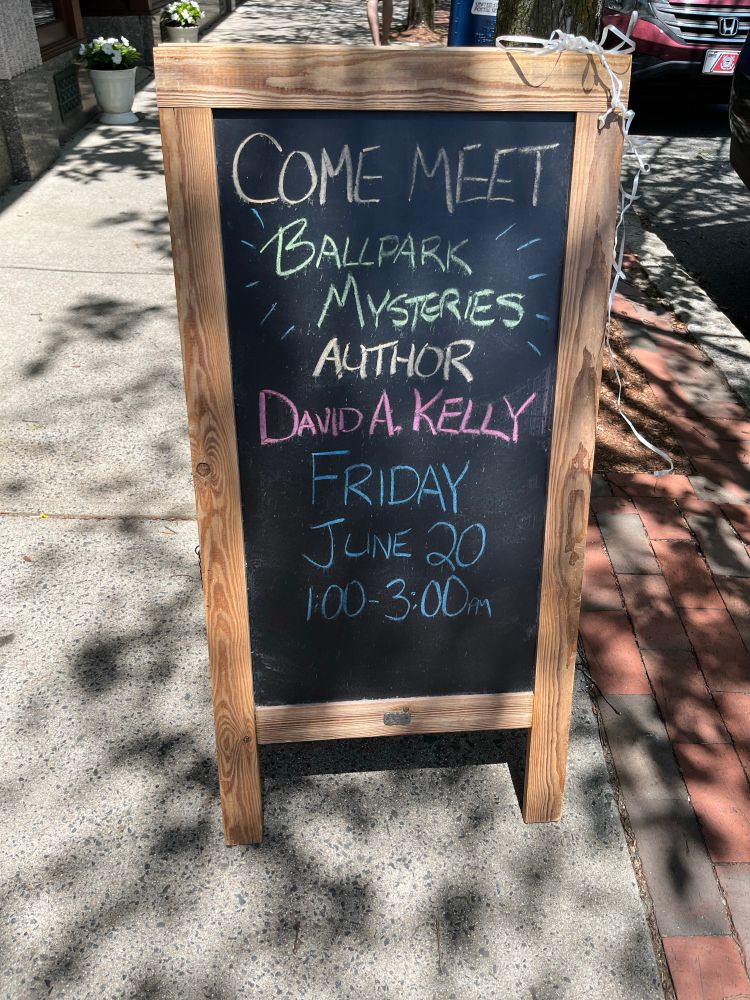 COME MEET
BALLPARK
MYSTERIES
AUTHOR
DAVID A. KELLY
FRIDAY
JUNE 20
1:00-3:00PM